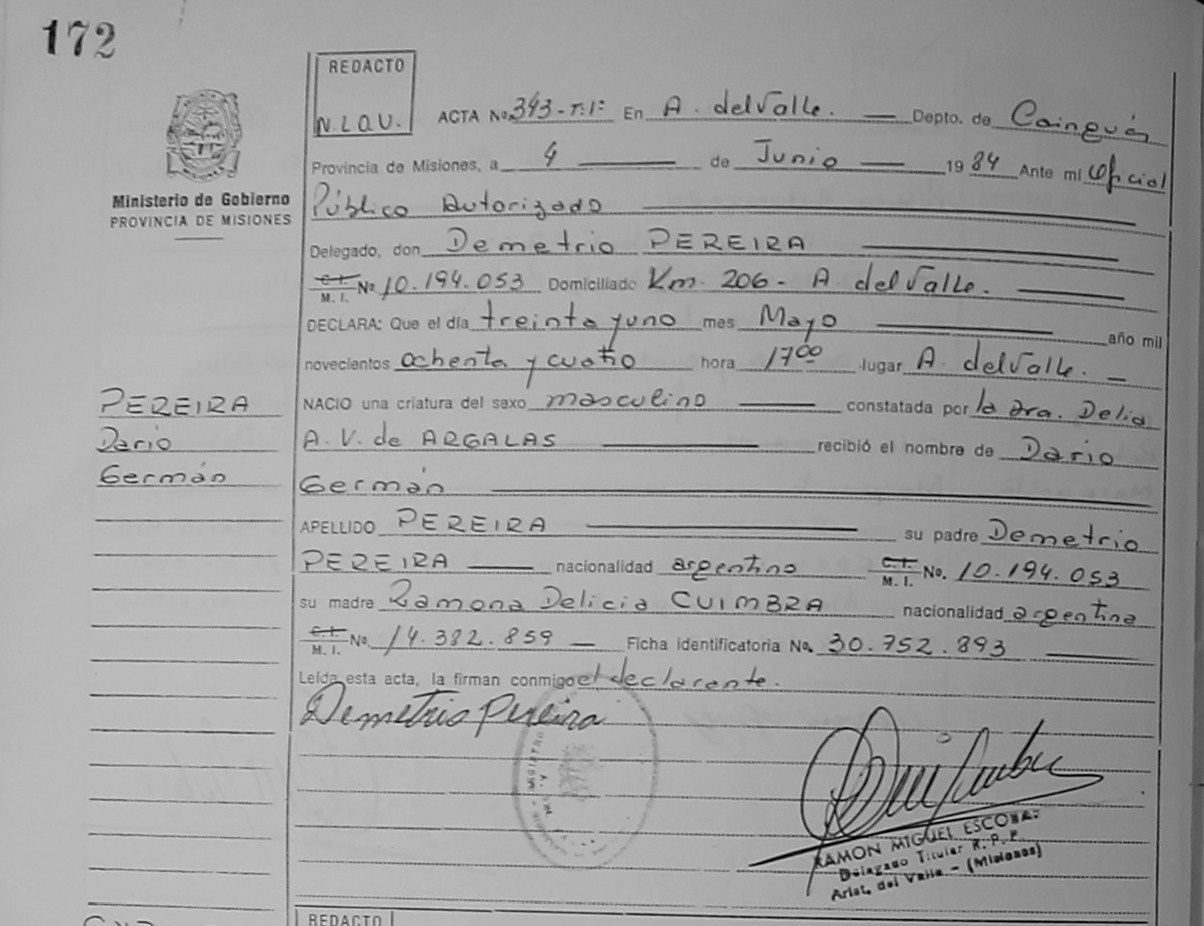 172
REDACTO
N.L.Q.U.
ACTA No. 343-T:1º En A. del Valle. Depto. de Cainguás
Provincia de Misiones, a 4 de Junio 1984 Ante mi Oficial
Ministerio de Gobierno
PROVINCIA DE MISIONES
Público Autorizado
Delegado, don Demetrio PEREIRA
C.I. M. I. No 10.194.053 Domiciliado Km. 206 - A del Valle.
DECLARA: Que el día treinta y uno mes Mayo año mil
novecientos ochenta y cuatro hora 17ºº lugar A. del Valle.
PEREIRA
Dario
Germán
NACIO una criatura del sexo masculino constatada por la Dra. Delia
A. V. de ARGALAS recibió el nombre de Dario
Germán
APELLIDO PEREIRA su padre Demetrio
PEREIRA nacionalidad argentino C.I. M. I. No. 10.194.053
su madre Ramona Delicia CUIMBRA nacionalidad argentina
C.I. M. I. No. 14.382.859 Ficha identificatoria No. 30.752.893
Leída esta acta, la firman conmigo el declarante.
Demetrio Pereira
RAMON MIGUEL ESCOBAR
Delegado Titular R. P. P.
Arist. del Valle - (Misiones)
REDACTO